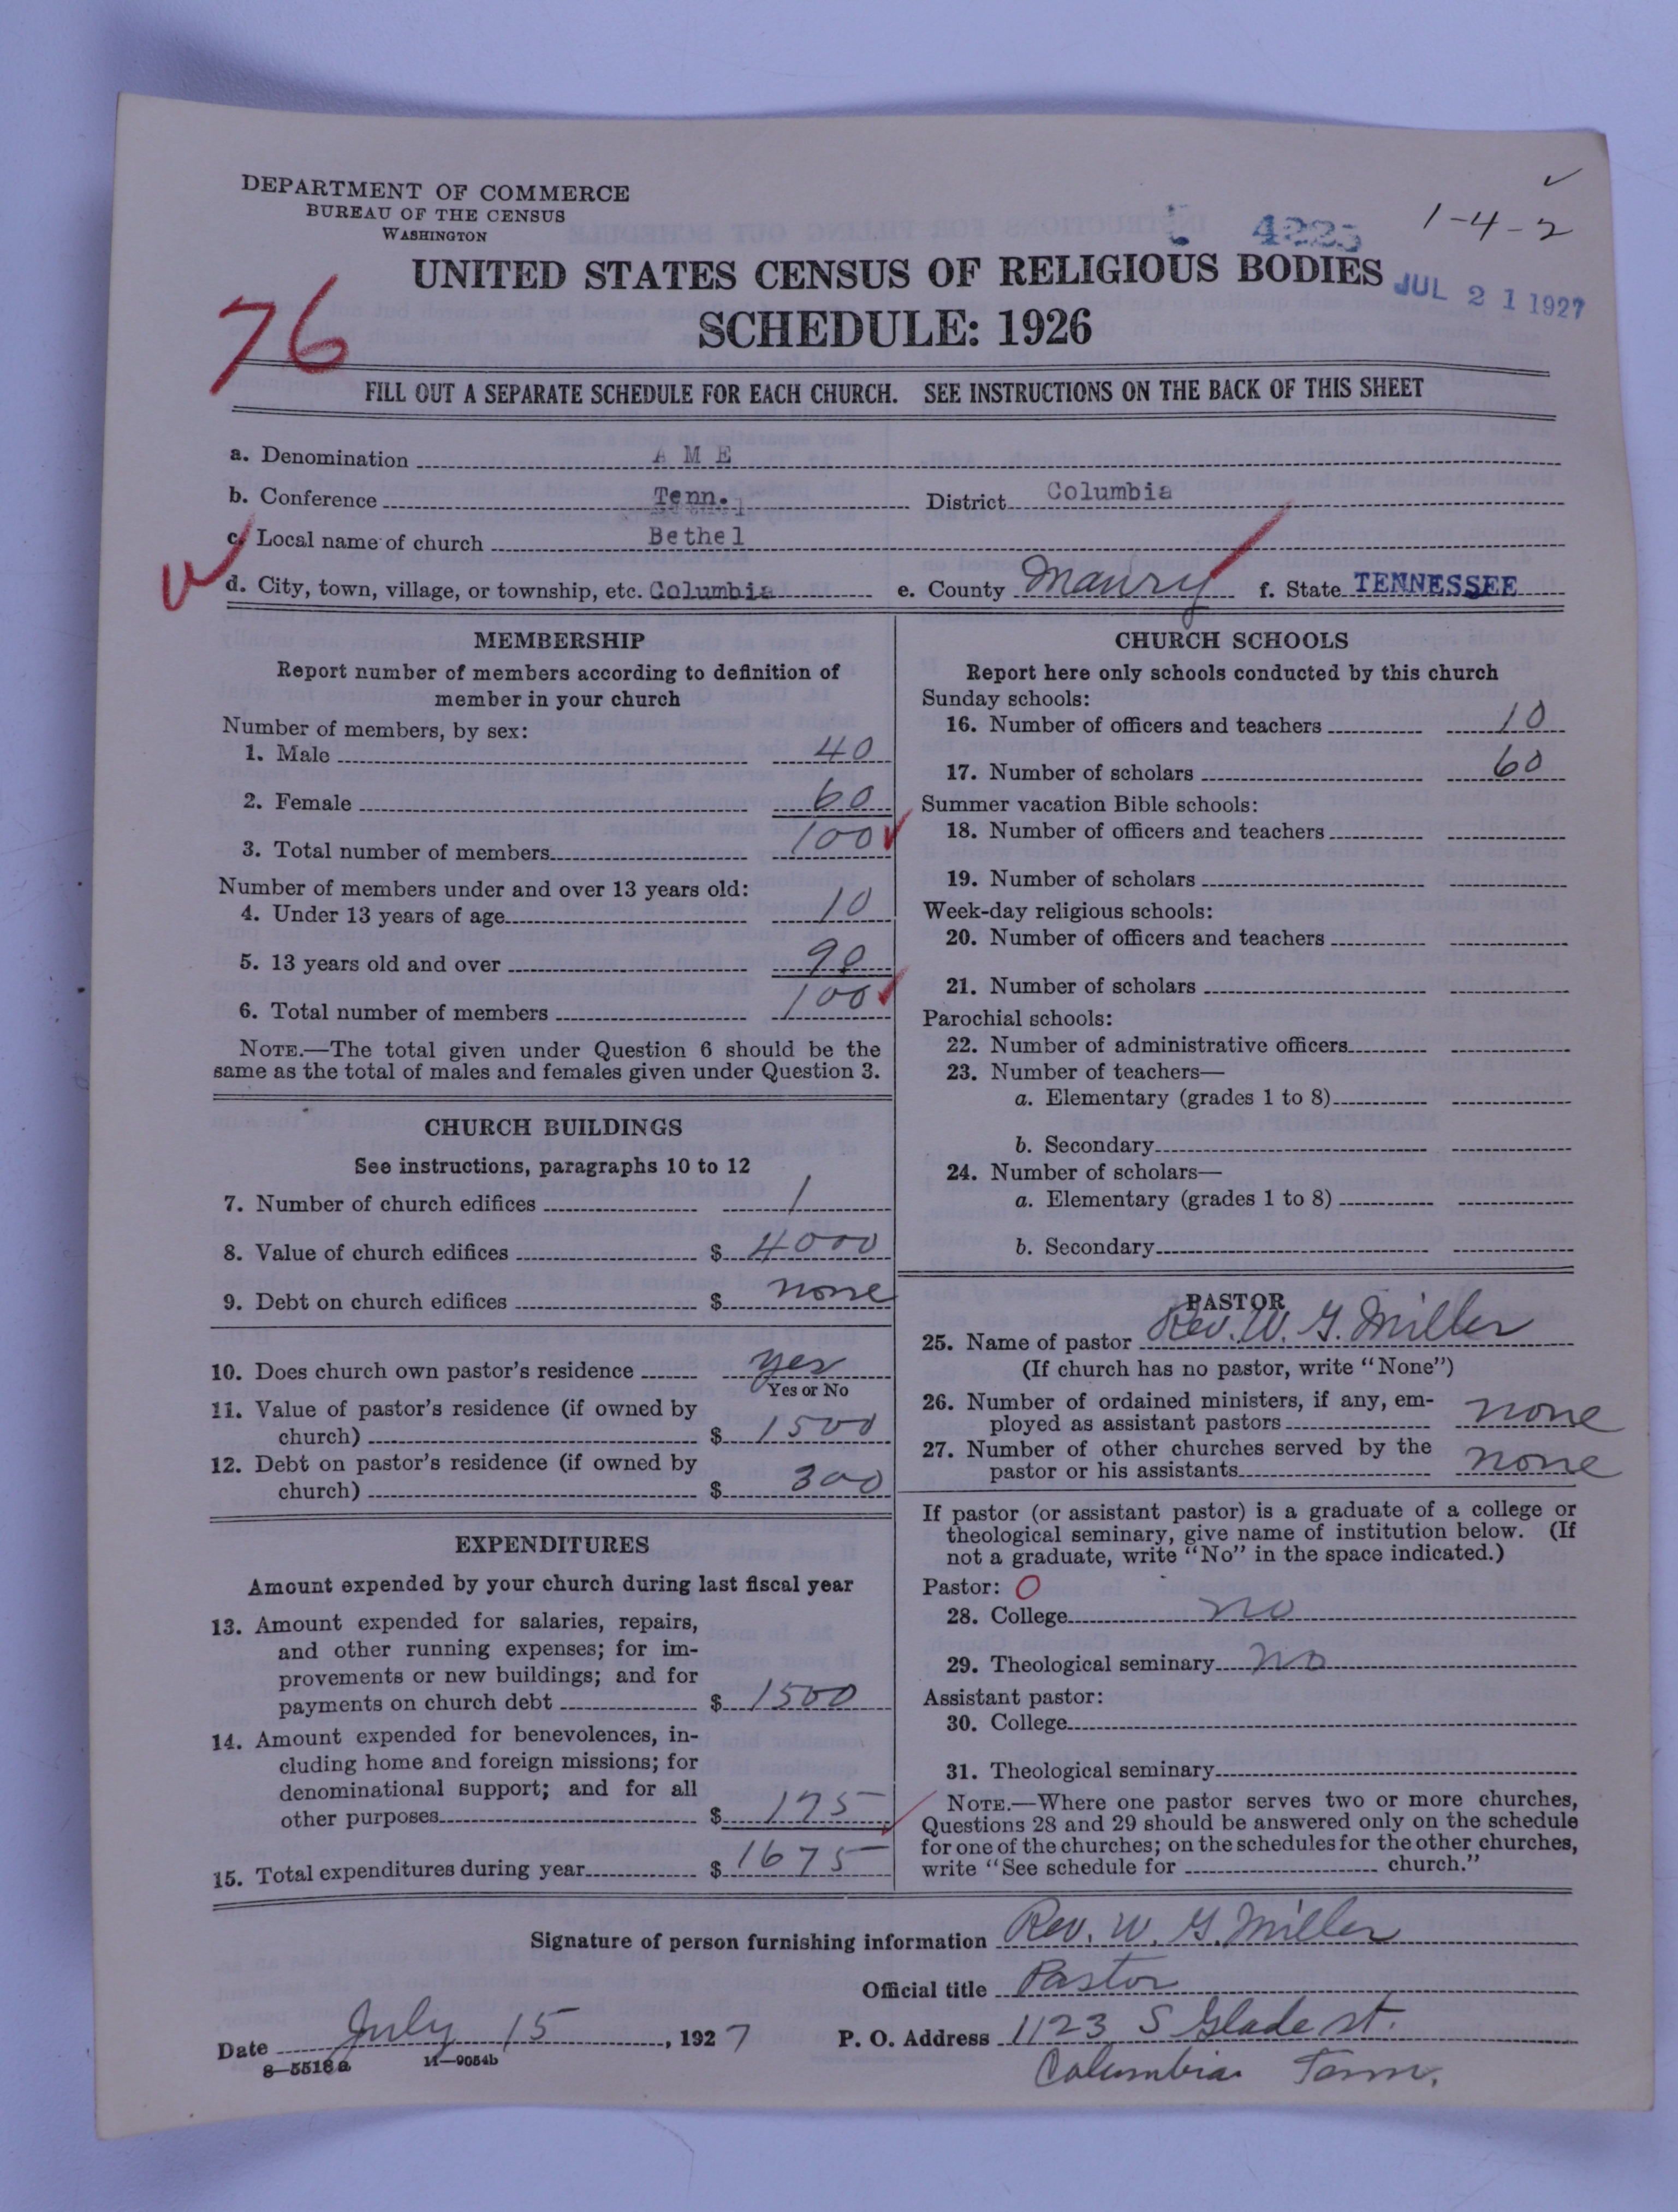 DEPARTMENT OF COMMERCE
BUREAU OF THE CENSUS
WASHINGTON
4225
1-4-2
UNITED STATES CENSUS OF RELIGIOUS BODIES
JUL 21 1927
76
SCHEDULE: 1926
FILL OUT A SEPARATE SCHEDULE FOR EACH CHURCH. SEE INSTRUCTIONS ON THE BACK OF THIS SHEET
a. Denomination A M E
b. Conference Tenn. District Columbia
c. Local name of church Bethel
d. City, town, village, or township, etc. Columbia e. County Maury f. State TENNESSEE
MEMBERSHIP
Report number of members according to definition of
member in your church
Number of members, by sex:
1. Male 40
2. Female 60
3. Total number of members 100
Number of members under and over 13 years old:
4. Under 13 years of age 10
5. 13 years old and over 90
6. Total number of members 100
NOTE.—The total given under Question 6 should be the
same as the total of males and females given under Question 3.
CHURCH BUILDINGS
See instructions, paragraphs 10 to 12
7. Number of church edifices 1
8. Value of church edifices $ 4000
9. Debt on church edifices $ none
10. Does church own pastor's residence yes
Yes or No
11. Value of pastor's residence (if owned by
church) $ 1500
12. Debt on pastor's residence (if owned by
church) $ 300
EXPENDITURES
Amount expended by your church during last fiscal year
13. Amount expended for salaries, repairs,
and other running expenses; for im-
provements or new buildings; and for
payments on church debt $ 1500
14. Amount expended for benevolences, in-
cluding home and foreign missions; for
denominational support; and for all
other purposes $ 175
15. Total expenditures during year $ 1675
CHURCH SCHOOLS
Report here only schools conducted by this church
Sunday schools:
16. Number of officers and teachers 10
17. Number of scholars 60
Summer vacation Bible schools:
18. Number of officers and teachers
19. Number of scholars
Week-day religious schools:
20. Number of officers and teachers
21. Number of scholars
Parochial schools:
22. Number of administrative officers
23. Number of teachers—
a. Elementary (grades 1 to 8)
b. Secondary
24. Number of scholars—
a. Elementary (grades 1 to 8)
b. Secondary
PASTOR
25. Name of pastor Rev. W. G. Miller
(If church has no pastor, write "None")
26. Number of ordained ministers, if any, em-
ployed as assistant pastors none
27. Number of other churches served by the
pastor or his assistants none
If pastor (or assistant pastor) is a graduate of a college or
theological seminary, give name of institution below. (If
not a graduate, write "No" in the space indicated.)
Pastor: O
28. College no
29. Theological seminary no
Assistant pastor:
30. College
31. Theological seminary
NOTE.—Where one pastor serves two or more churches,
Questions 28 and 29 should be answered only on the schedule
for one of the churches; on the schedules for the other churches,
write "See schedule for church."
Signature of person furnishing information Rev. W. G. Miller
Official title Pastor
Date July 15, 1927 P. O. Address 1123 S Glade st.
8—5518a 11—9054b
Columbia Tenn.